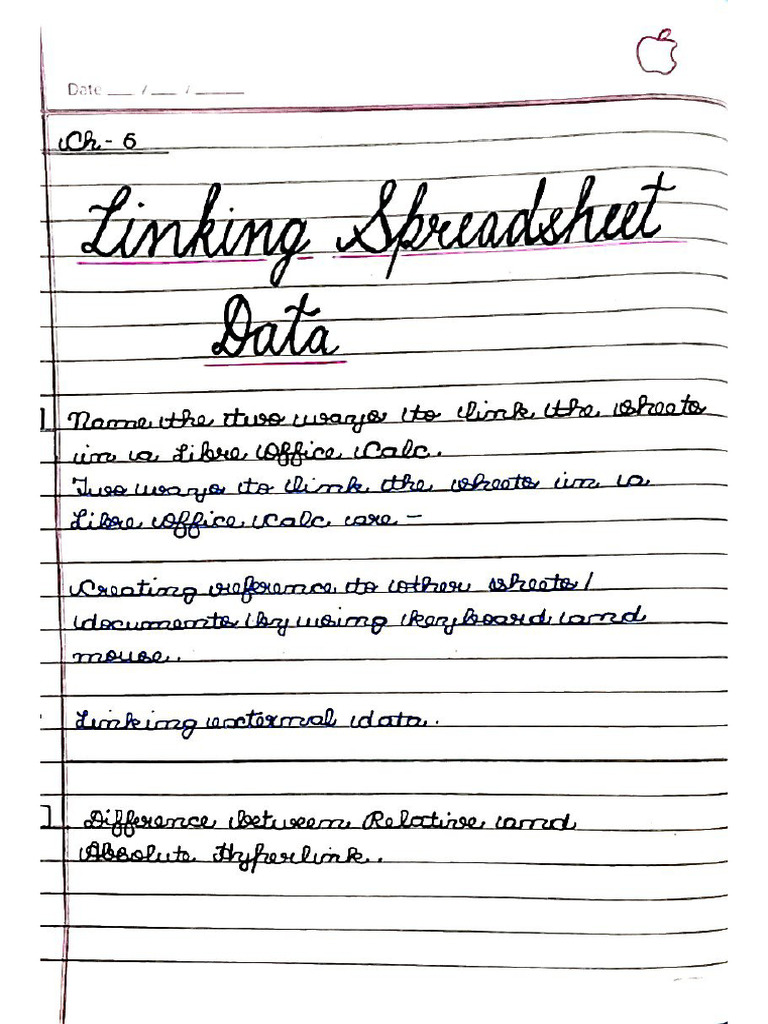 Date __ / __ / ____
Ch - 6
Linking Spreadsheet
Data
Name the two ways to link the sheets
in a Libre Office Calc.
Two ways to link the sheets in a
Libre Office Calc are -
Creating reference to other sheets/
documents by using keyboard and
mouse.
Linking external data.
Difference between Relative and
Absolute Hyperlink.